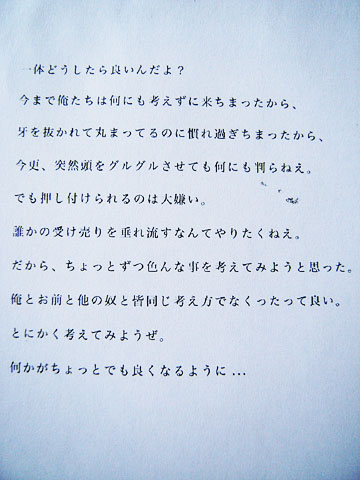 一体どうしたら良いんだよ？
今まで俺たちは何にも考えずに来ちまったから、
牙を抜かれて丸まってるのに慣れ過ぎちまったから、
今更、突然頭をグルグルさせても何にも判らねえ。
でも押し付けられるのは大嫌い。
誰かの受け売りを垂れ流すなんてやりたくねえ。
だから、ちょっとずつ色んな事を考えてみようと思った。
俺とお前と他の奴と皆同じ考え方でなくったって良い。
とにかく考えてみようぜ。
何かがちょっとでも良くなるように...